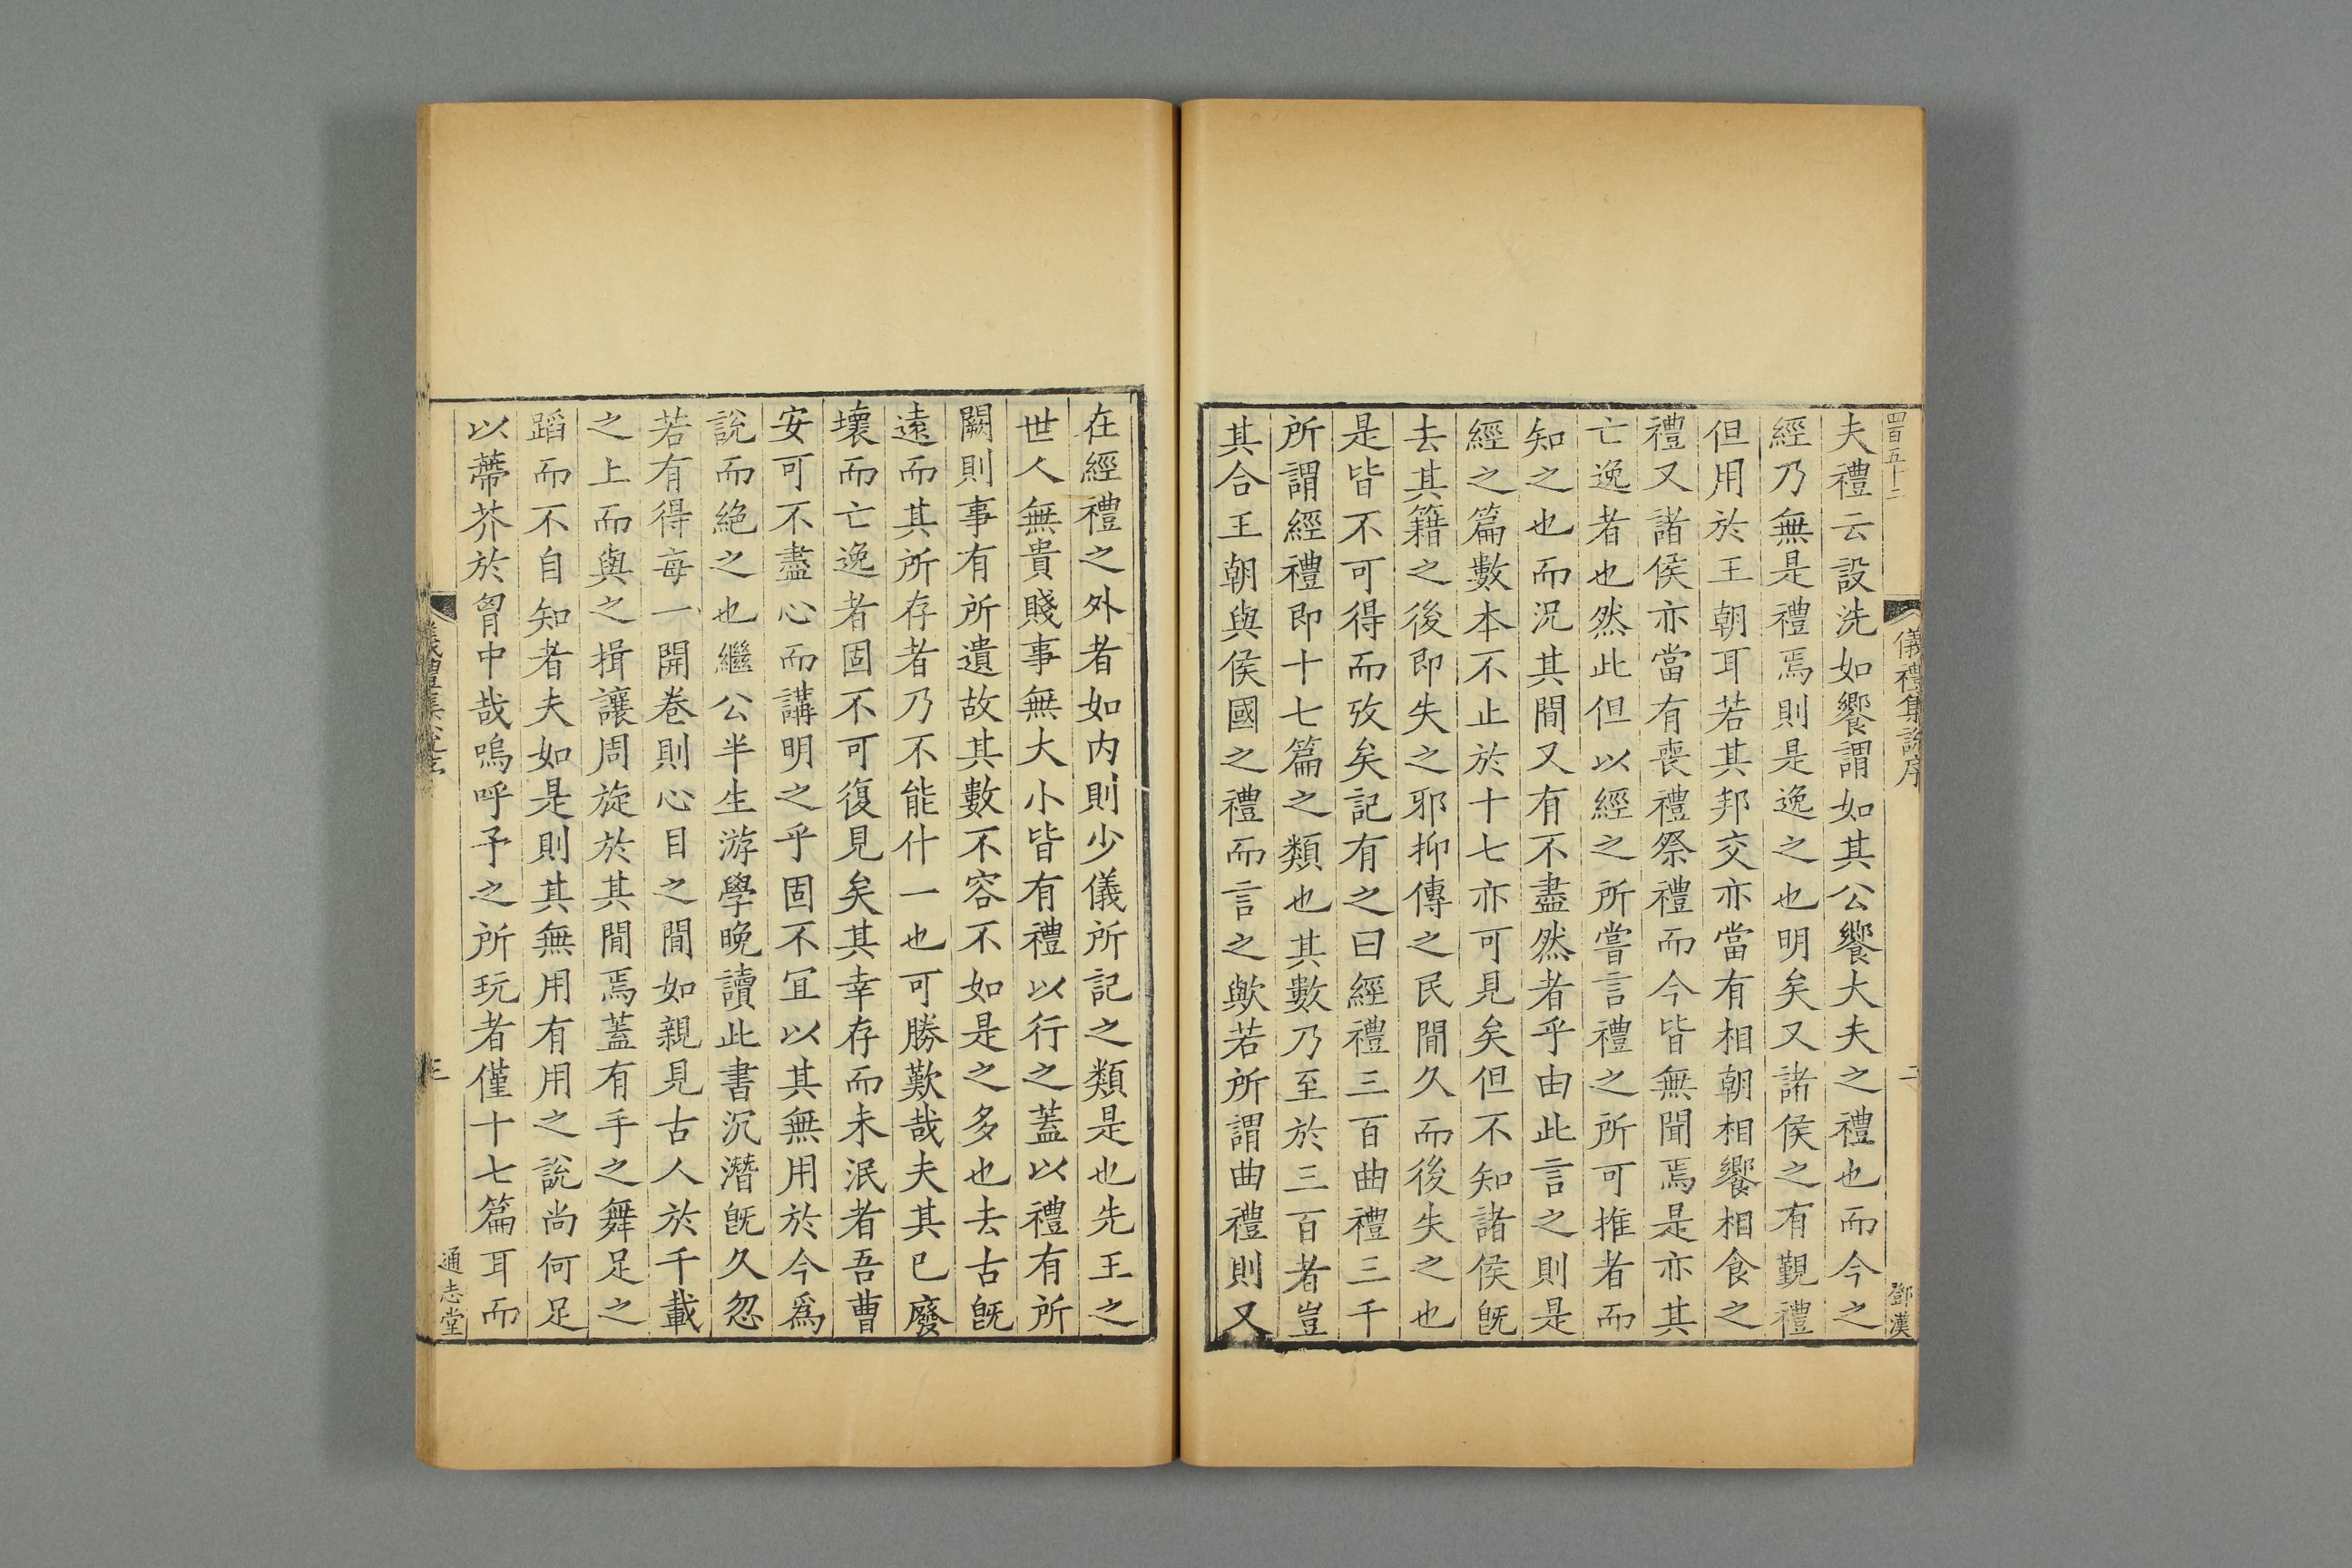 四百五十二
儀禮集說序
二
鄧漢
夫禮云設洗如饗謂如其公饗大夫之禮也而今之
經乃無是禮焉則是逸之也明矣又諸侯之有覲禮
但用於王朝耳若其邦交亦當有相朝相饗相食之
禮又諸侯亦當有喪禮祭禮而今皆無聞焉是亦其
亡逸者也然此但以經之所嘗言禮之所可推者而
知之也而況其閒又有不盡然者乎由此言之則是
經之篇數本不止於十七亦可見矣但不知諸侯旣
去其籍之後卽失之邪抑傳之民閒久而後失之也
是皆不可得而攷矣記有之曰經禮三百曲禮三千
所謂經禮卽十七篇之類也其數乃至於三百者豈
其合王朝與侯國之禮而言之歟若所謂曲禮則又
在經禮之外者如内則少儀所記之類是也先王之
世人無貴賤事無大小皆有禮以行之蓋以禮有所
闕則事有所遺故其數不容不如是之多也去古旣
遠而其所存者乃不能什一也可勝歎哉夫其已廢
壞而亡逸者固不可復見矣其幸存而未泯者吾曹
安可不盡心而講明之乎固不冝以其無用於今爲
說而絕之也繼公半生游學晚讀此書沉潛旣久忽
若有得每一開卷則心目之閒如親見古人於千載
之上而與之揖讓周旋於其閒焉蓋有手之舞足之
蹈而不自知者夫如是則其無用有用之說尚何足
以蔕芥於胷中哉嗚呼予之所玩者僅十七篇耳而
儀禮集說序
三
通志堂